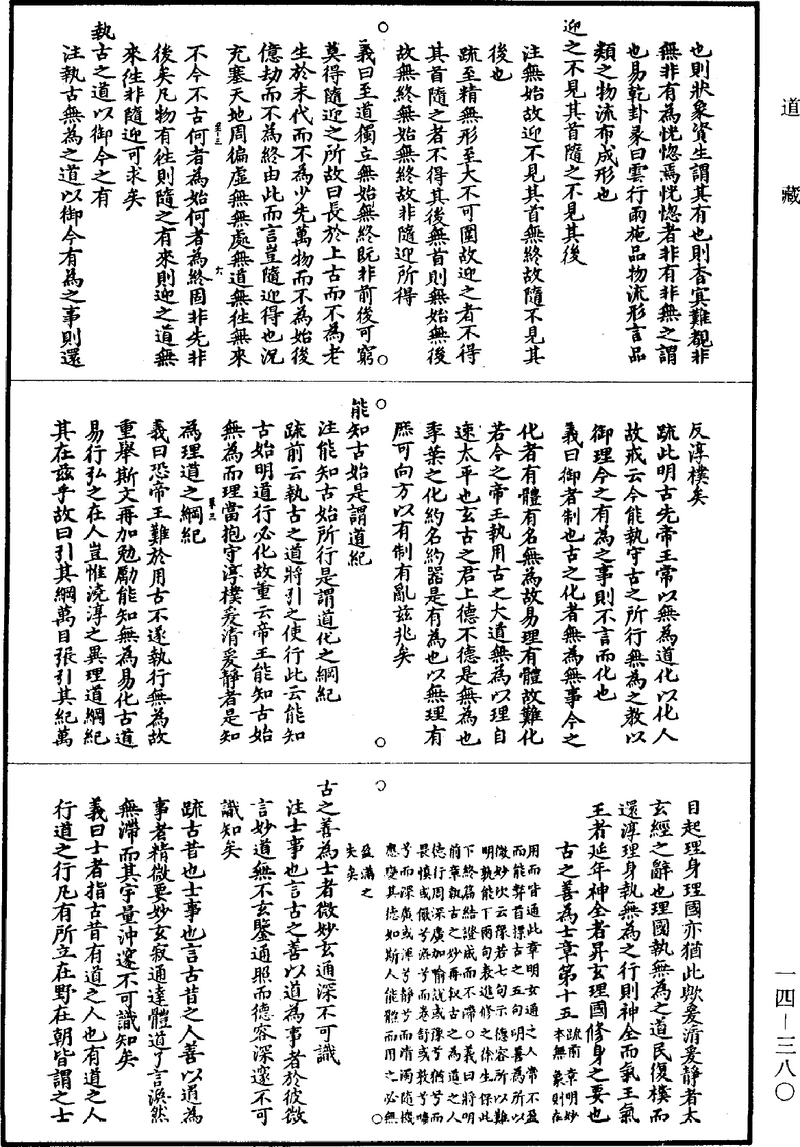 道藏
也則狀象資生謂其有也則杳冥難覩非
無非有為恍惚焉恍惚者非有非無之謂
也易乾卦彖曰雲行雨施品物流形言品
類之物流布成形也
迎之不見其首隨之不見其後
注無始故迎不見其首無終故隨不見其
後也
疏至精無形至大不可圍故迎之者不得
其首隨之者不得其後無首則無始無後
故無終無始無終故非隨迎所得
義曰至道獨立無始無終既非前後可窮
莫得隨迎之所故曰長於上古而不為老
生於末代而不為少先萬物而不為始後
億劫而不為終由此而言豈隨迎得也況
充塞天地周徧虛無無處無道無往無來
不今不古何者為始何者為終固非先非
後矣凡物有往則隨之有來則迎之道無
來往非隨迎可求矣
執古之道以御今之有
注執古無為之道以御今有為之事則還
反淳樸矣
疏此明古先帝王常以無為道化以化人
故戒云今能執守古之所行無為之教以
御理今之有為之事則不言而化也
義曰御者制也古之化者無為無事今之
化者有體有名無為故易理有體故難化
若今之帝王執用古之大道無為以理自
速太平也玄古之君上德不德是無為也
季葉之化約名約器是有為也以無理有
庶可向方以有制有亂茲兆矣
能知古始是謂道紀
注能知古始所行是謂道化之綱紀
疏前云執古之道將引之使行此云能知
古始明道行必化故重云帝王能知古始
無為而理當抱守淳樸爰清爰靜者是知
為理道之綱紀
義曰恐帝王難於用古不遂執行無為故
重舉斯文再加勉勵能知無為易化古道
易行弘之在人豈惟澆淳之異理道綱紀
其在茲乎故曰引其綱萬目張引其紀萬
目起理身理國亦猶此歟爰清爰靜者太
玄經之辭也理國執無為之道民復樸而
還淳理身執無為之行則神全而氣王氣
王者延年神全者昇玄理國修身之要也
古之善為士章第十五
用而皆通此章明玄通之人常不盈
而能弊首標古之五句明善為所以
微妙次云深若七句示德容所以難
明孰能下兩句表進修之徐生保此
下終篇結證成而不滯○義曰將明
前章執古之妙再叙古之為道之人
德行周深廣加喻說或豫兮猶兮而
畏慎或儼兮
應變其德如斯人能體而用之必無
盈滿之
失矣
古之善為士者微妙玄通深不可識
注士事也言古之善以道為事者於彼微
言妙道無不玄鑒通照而德容深邃不可
識知矣
疏古昔也士事也言古昔之人善以道為
事者精微要妙玄寂通達體道了言渙然
無滯而其宇量沖邃不可識知矣
義曰士者指古昔有道之人也有道之人
行道之行凡有所立在野在朝皆謂之士
一四—三八〇